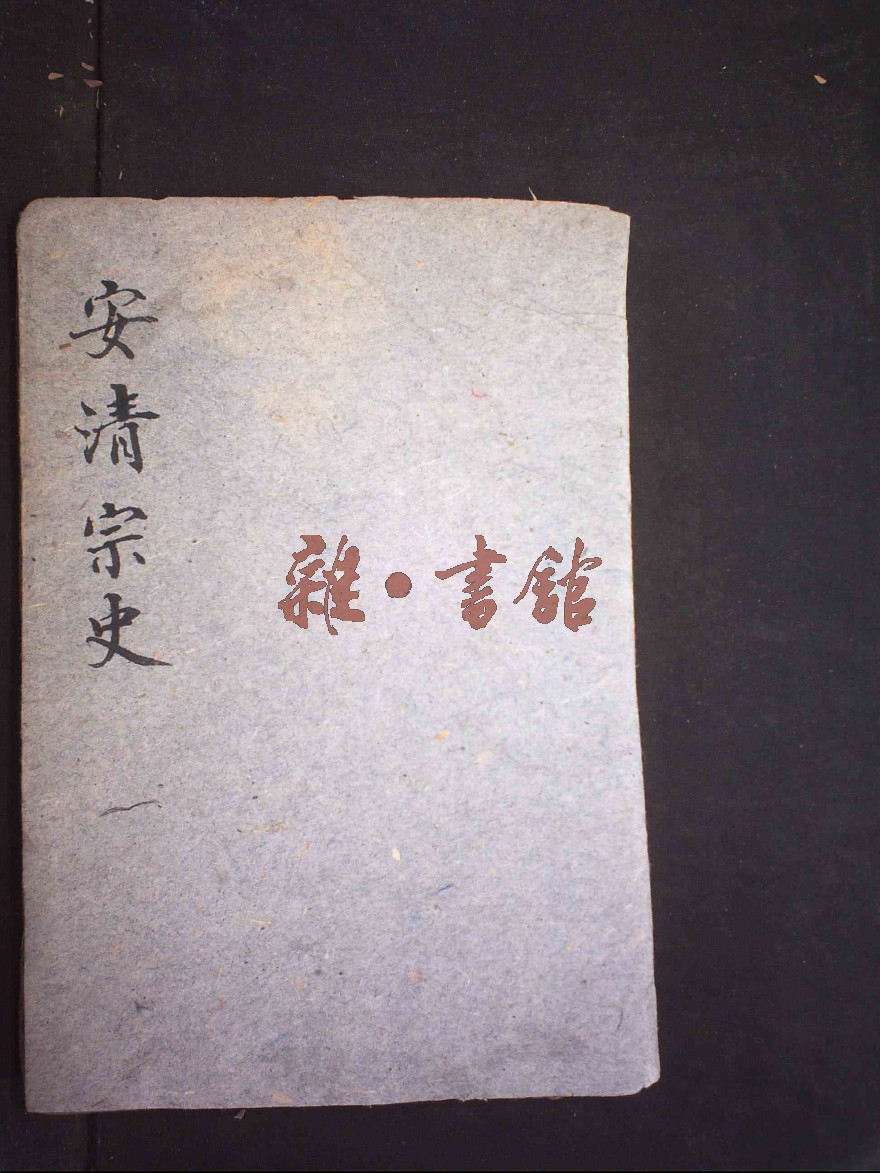 安清宗史 一
雜·書館